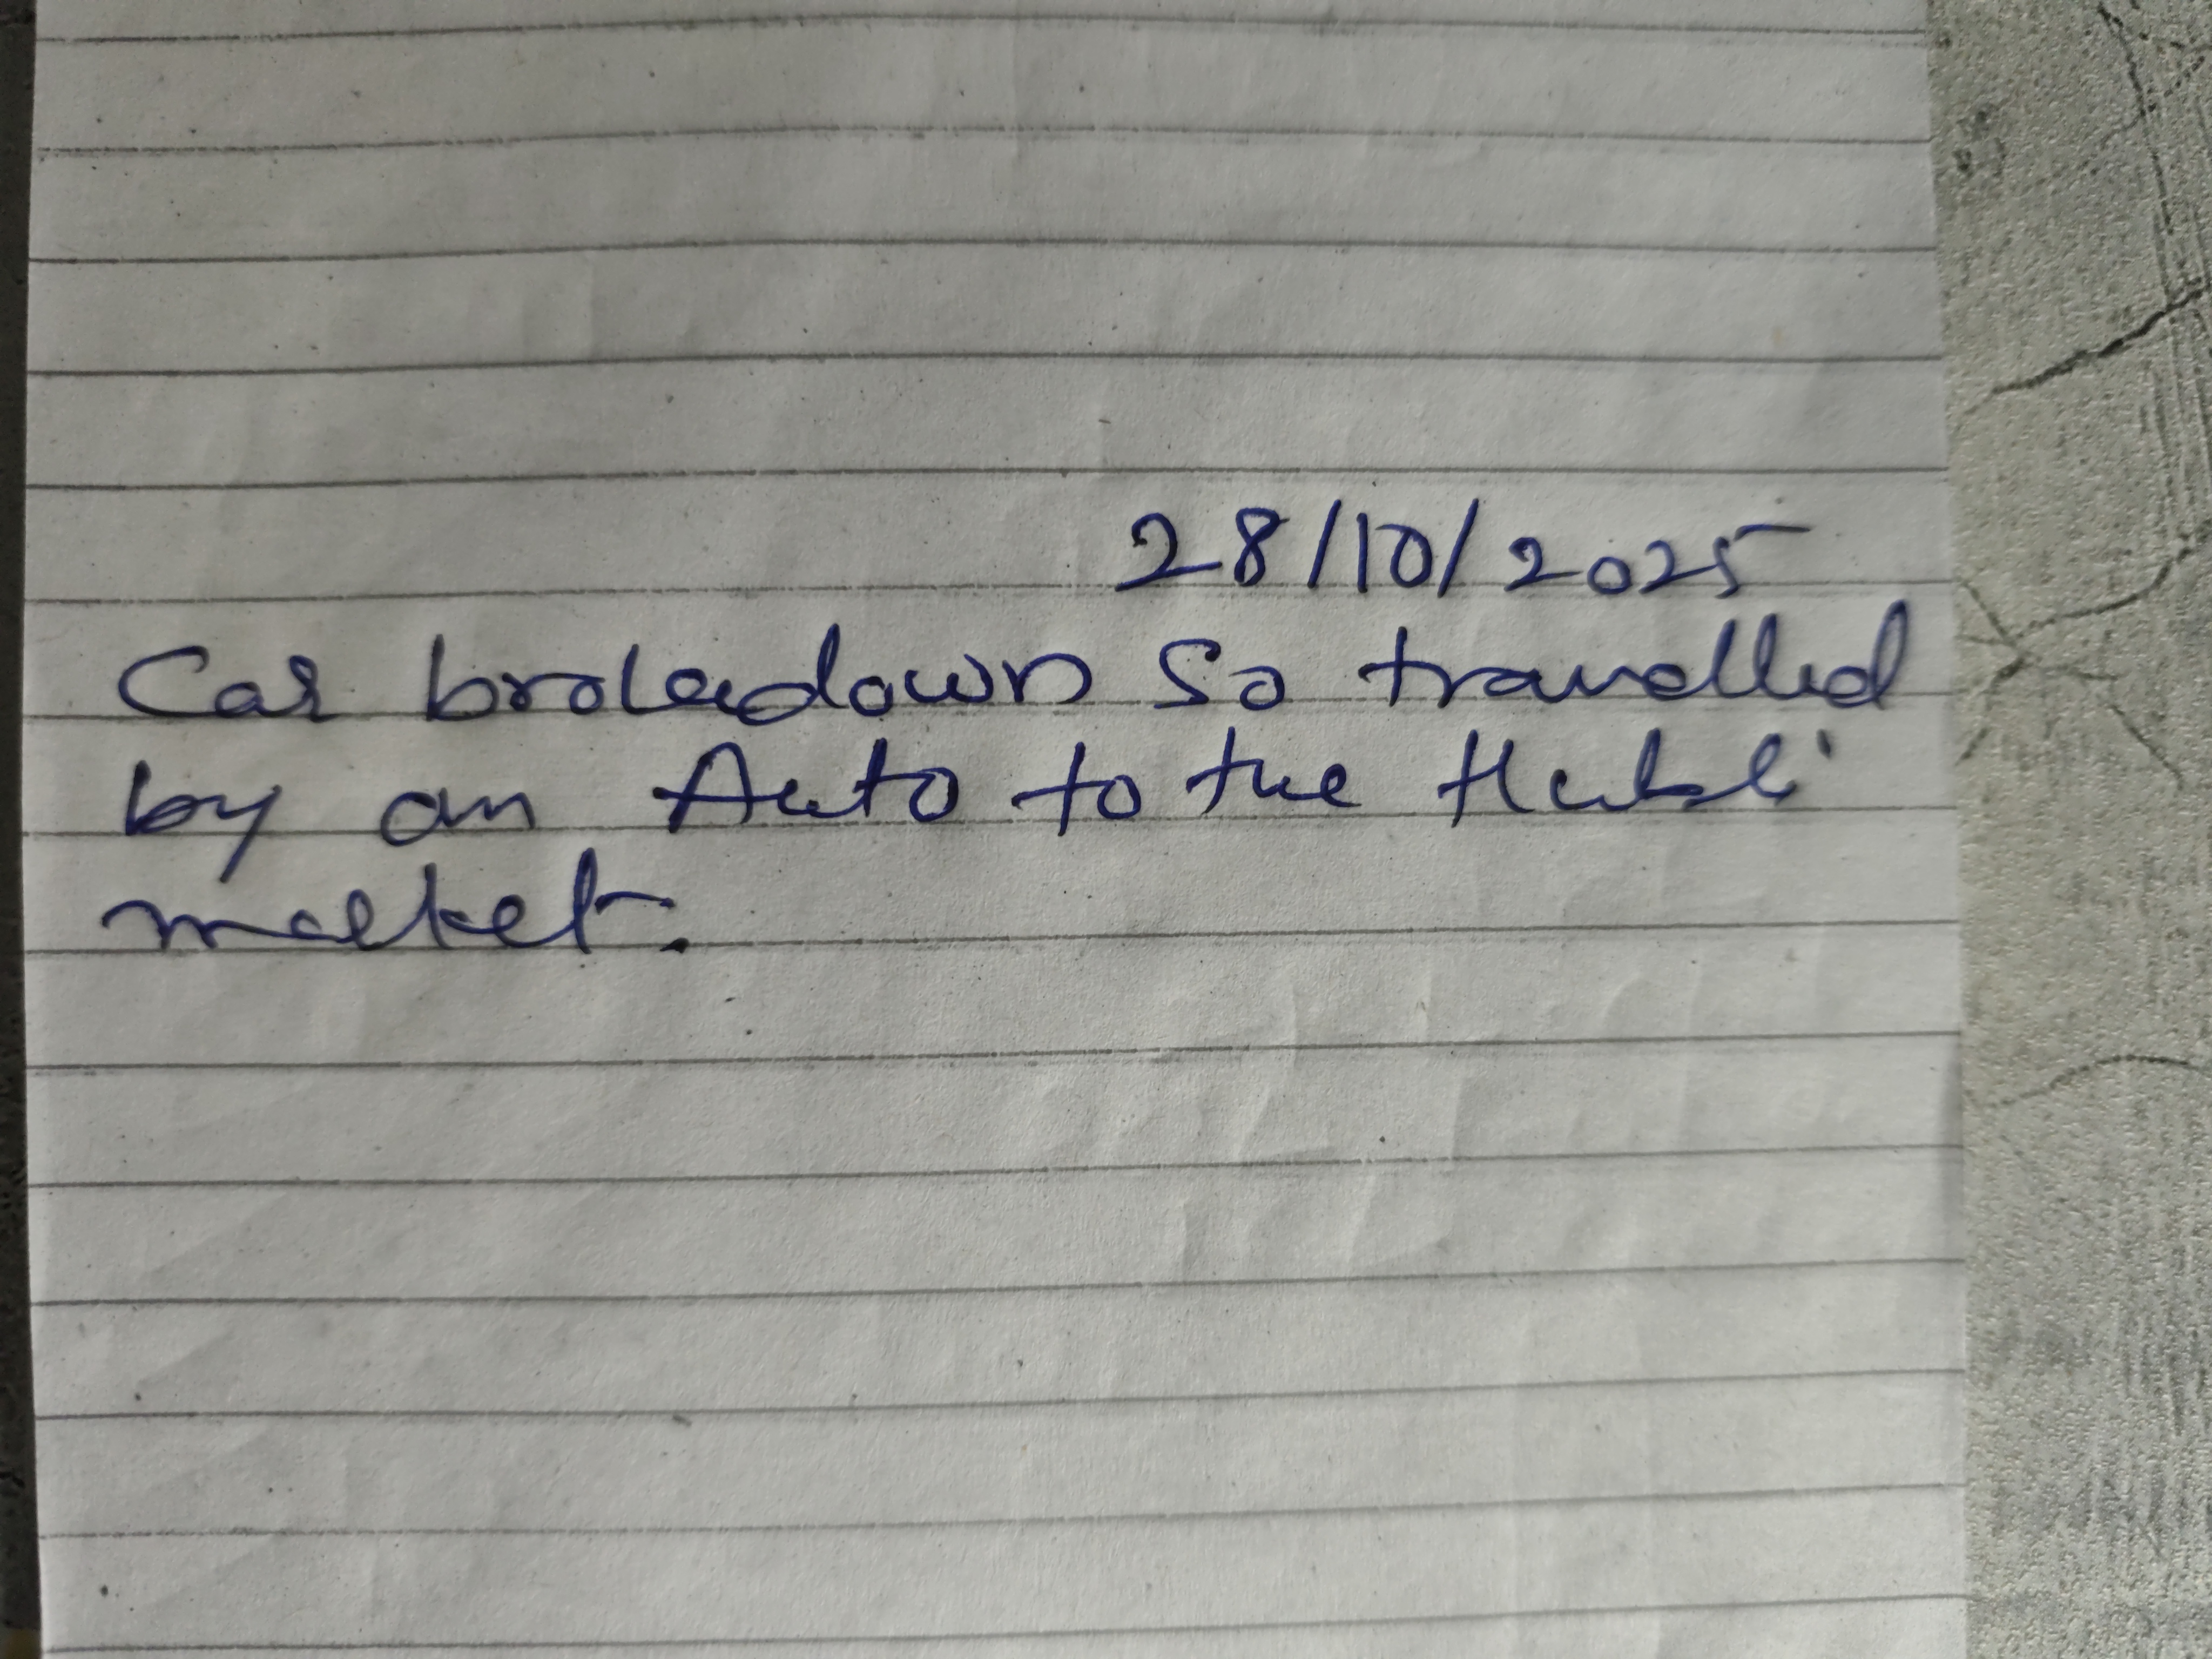 28/10/2025
Car brokedown so travelled
by an Auto to the Hubli
market.